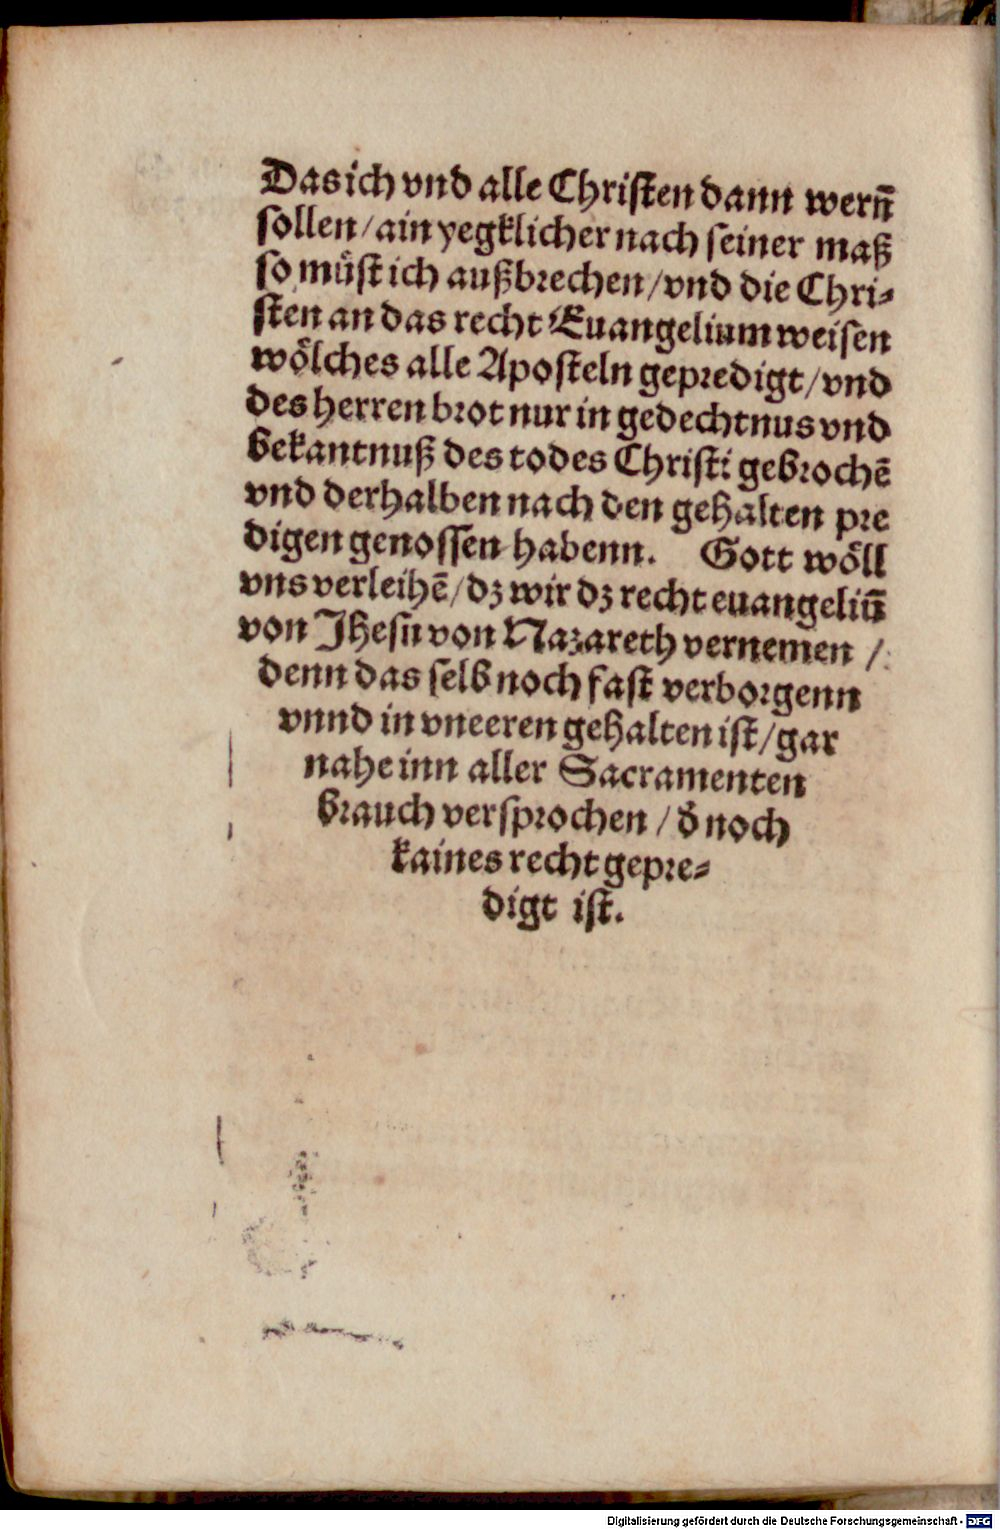 Das ich vnd alle Christen dann wern̄
sollen / ain yegklicher nach seiner maß
so muͤst ich außbrechen / vnd die Chri⸗
sten an das recht Euangelium weisen
woͤlches alle Aposteln gepredigt / vnd
des herren brot nur in gedechtnus vnd
bekantnuß des todes Christi gebrochē
vnd derhalben nach den gehalten pre
digen genossen habenn. Gott woͤll
vns verleihē / dz wir dz recht euangeliū
von Jhesu von Nazareth vernemen /
denn das selb noch fast verborgenn
vnnd in vneeren gehalten ist / gar
nahe inn aller Sacramenten
brauch versprochen / d̄ noch
kaines recht gepre⸗
digt ist.
Digitalisierung gefördert durch die Deutsche Forschungsgemeinschaft - DFG